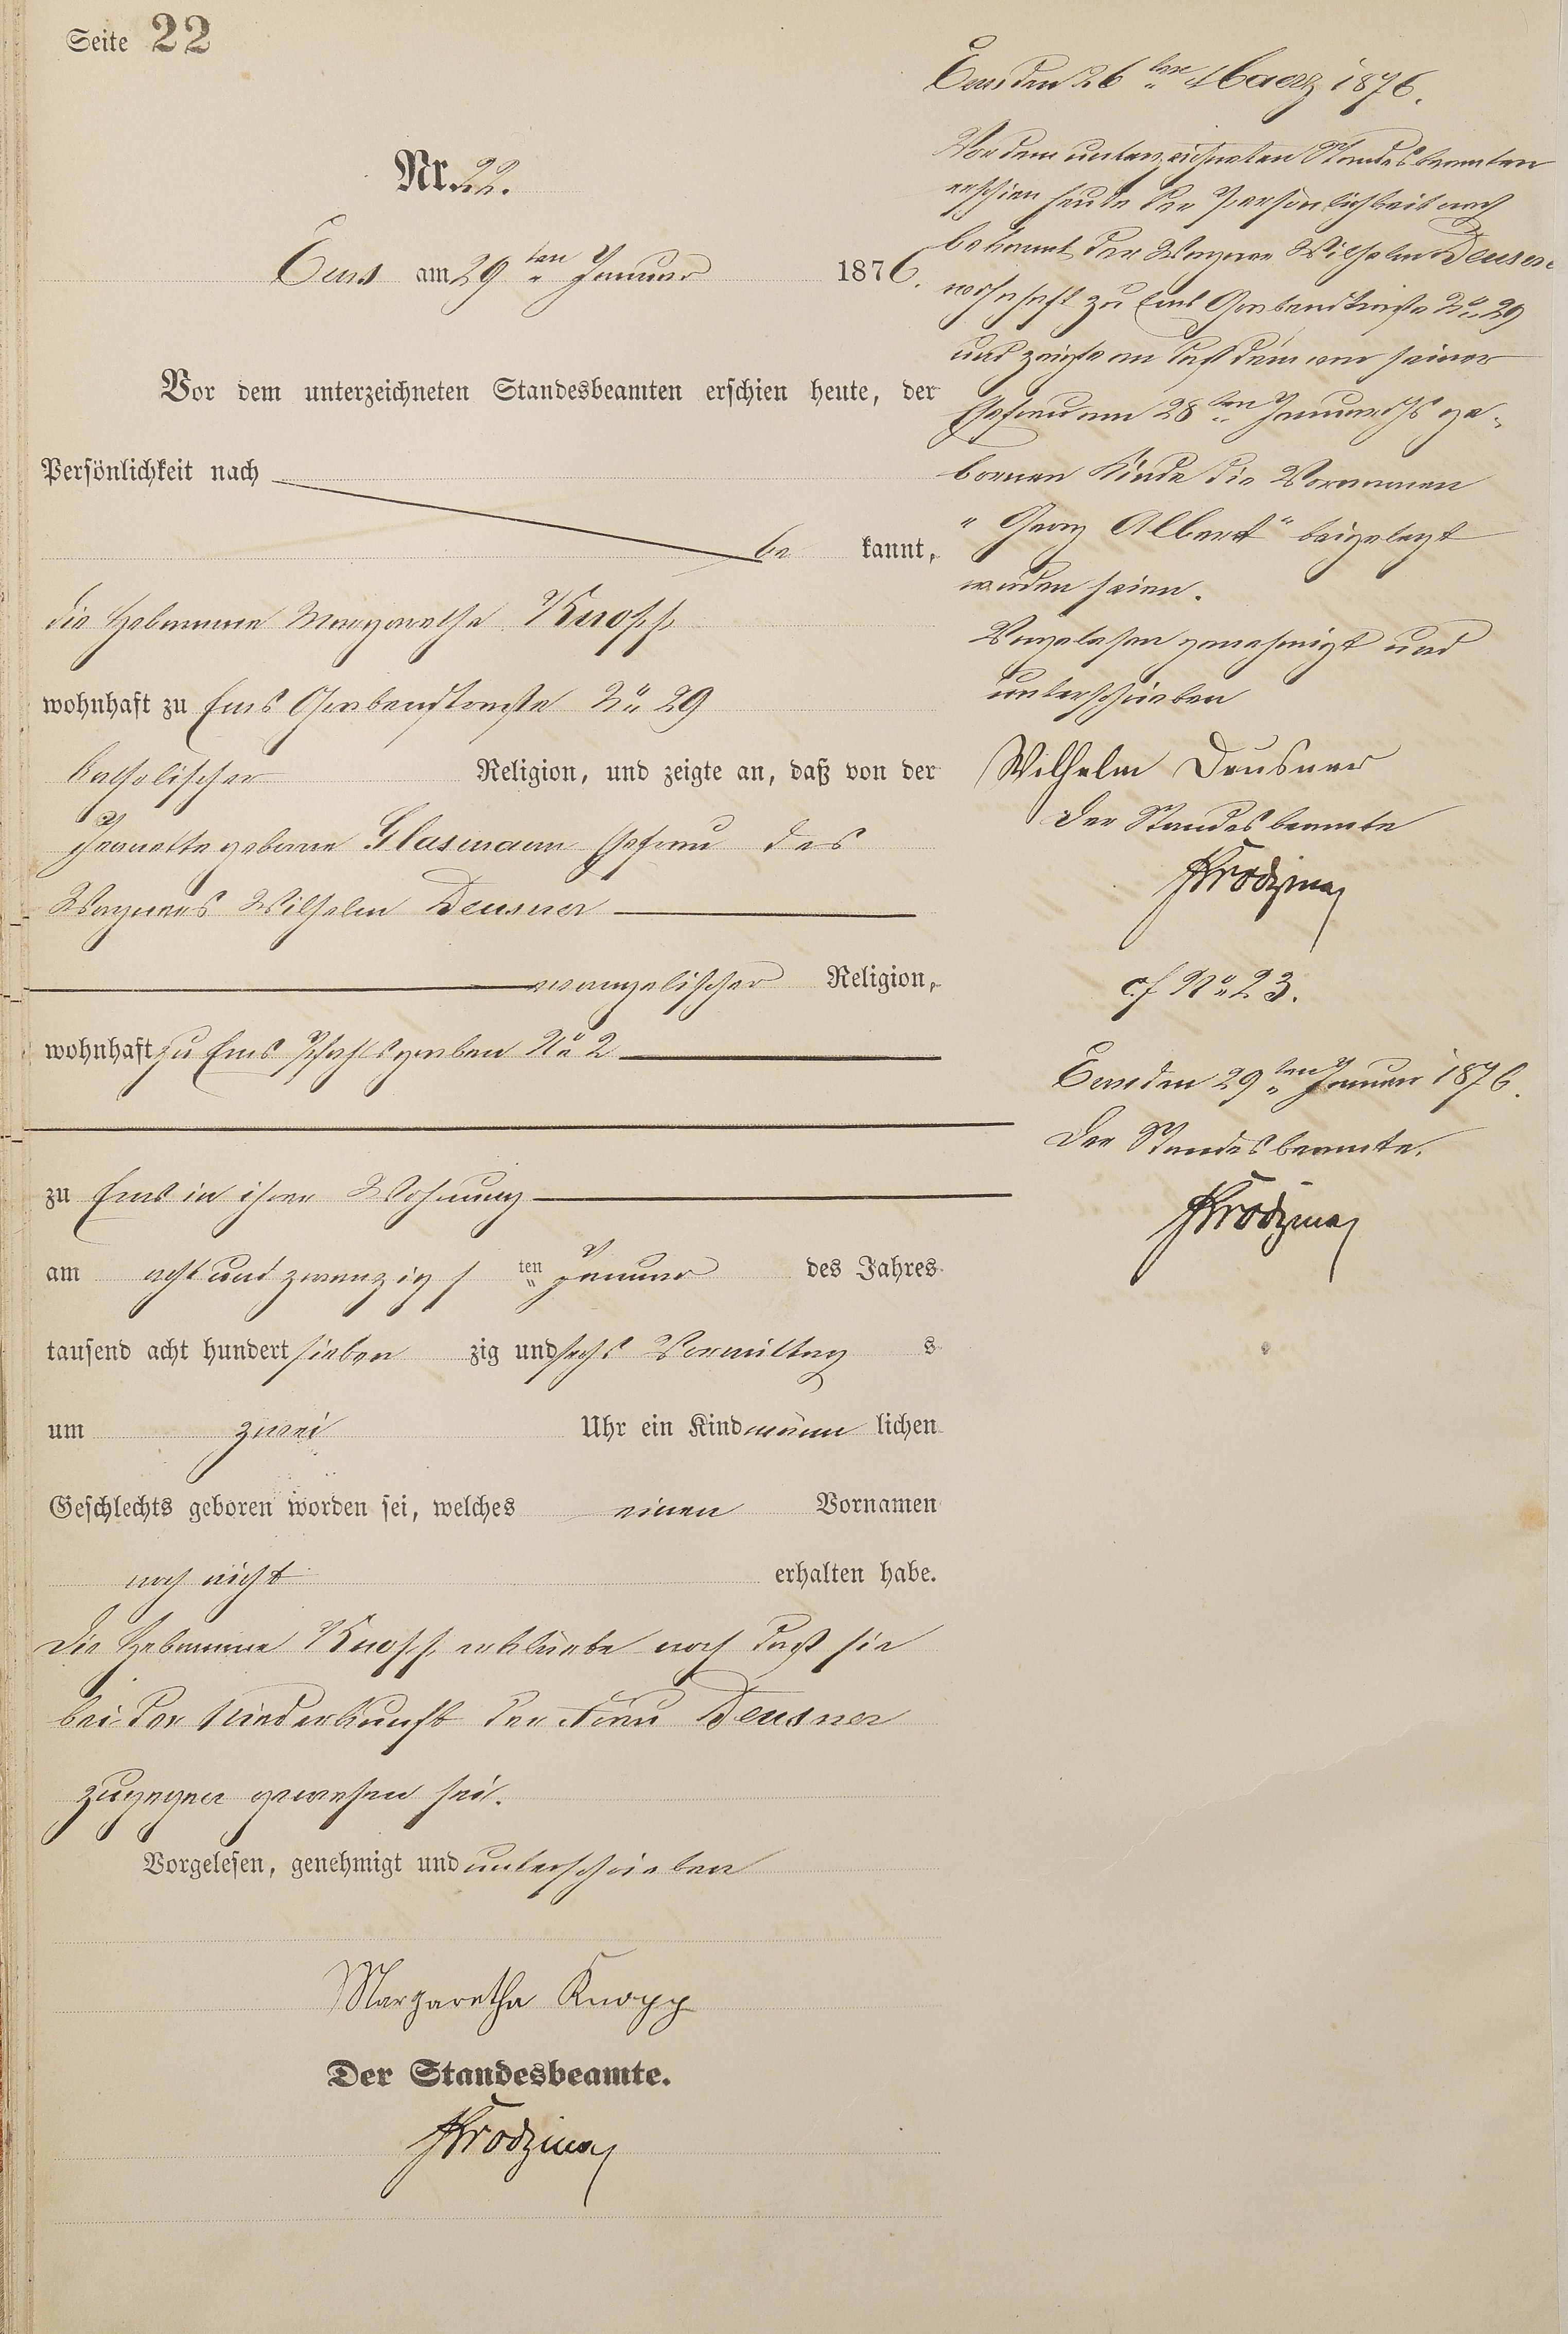 Seite 22
Nr. 22.
Ems am 29 ten Januar 1876.
Vor dem unterzeichneten Standesbeamten erschien heute, der
Persönlichkeit nach
be kannt,
die Hebamme Margarethe Knopp
wohnhaft zu Ems Grabenstraße No 29
katholischer Religion, und zeigte an, daß von der
Jeanette geborne Glasmann Ehefrau des
Wagners Wilhelm Deusner
evangelischer Religion,
wohnhaft zu Ems Pfahlsgraben No 2
zu Ems in ihrer Wohnung
am acht und zwanzigsten Januar des Jahres
tausend acht hundert sieben zig und sechs Vormittag s
um zwei Uhr ein Kind männ lichen
Geschlechts geboren worden sei, welches einen Vornamen
noch nicht erhalten habe.
Die Hebamme Knopp erklärte noch daß sie
bei der Niederkunft der Frau Deusner
zugegen gewesen sei.
Vorgelesen, genehmigt und unterschrieben
Margaretha Knopp
Der Standesbeamte.
Ems den 26 ten Maerz 1876.
Vor dem unterzeichneten Standesbeamten
erschien heute der Persönlichkeit nach
bekannt der Wagner Wilhelm Deusner
wohnhaft zu Ems Grabenstraße No 29
und zeigte an daß dem von seiner
Ehefrau am 28 ten Januar ge-
bornen Kinde die Vornamen
"Georg Albert" beigelegt
worden seien.
Vorgelesen genehmigt und
unterschrieben
Wilhelm Deusner
Der Standesbeamte
cf No 23.
Ems den 29 ten Januar 1876.
Der Standesbeamte.